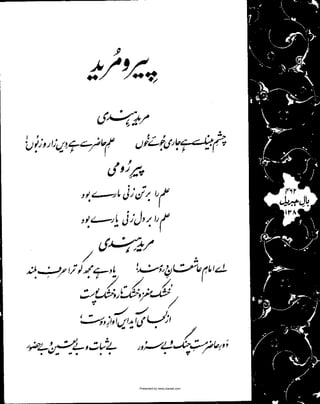 پیر و مُرید
مریدِ ہندی
چشمِ بینا سے ہے جاری جُوئے خوں
علمِ حاضر سے ہے دِیں زار و زبوں!
پیرِ رُومی
علم را بر تن زنی مارے بود
علم را بر دل زنی یارے بود
مریدِ ہندی
اے امامِ عاشقانِ دردمند!
یاد ہے مجھ کو ترا حرفِ بلند
خشک مغز و خشک تار و خشک پوست
از کجا می آید ایں آوازِ دوست!
دَورِ حاضر مستِ چنگ و بے سُرور
بے ثبات و بے یقین و بے حضور
۴۶۲
بالِ جبریل
۱۳۸
Presented by www.ziaraat.com